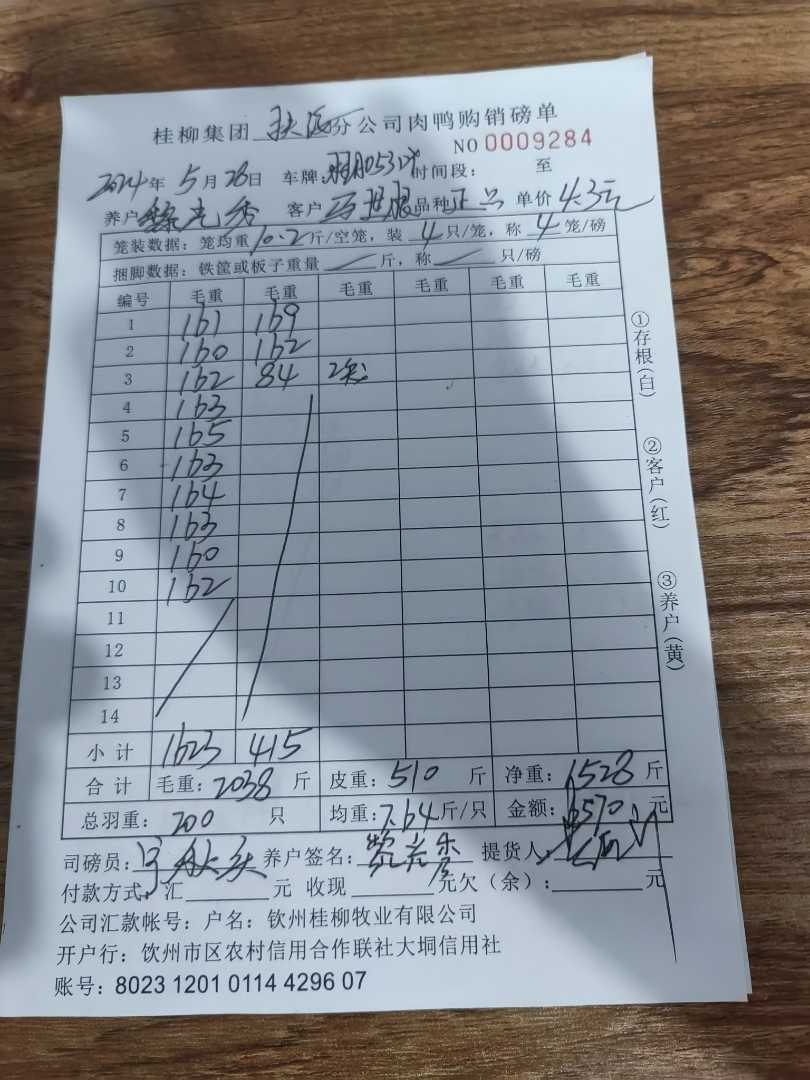 桂柳集团 分公司肉鸭购销磅单
NO 0009284
2024年 5月 26日 车牌: 时间段: 至
养户 客户 品种正品 单价4.3元
笼装数据：笼均重10.2斤/空笼，装 4 只/笼，称 4 笼/磅
捆脚数据：铁筐或板子重量 斤，称 只/磅
编号 毛重 毛重 毛重 毛重 毛重 毛重
1 161 169
2 160 162
3 162 84 2笼
4 163
5 165
6 163
7 164
8 163
9 160
10 162
11
12
13
14
小计 1623 415
合计 毛重：2038 斤 皮重：510 斤 净重：1528 斤
总羽重：200 只 均重：7.64斤/只 金额：6570 元
司磅员： 养户签名： 提货人：
付款方式：汇 元 收现 元欠（余）： 元
公司汇款帐号：户名：钦州桂柳牧业有限公司
开户行：钦州市区农村信用合作联社大垌信用社
账号：8023 1201 0114 4296 07
①存根(白)
②客户(红)
③养户(黄)